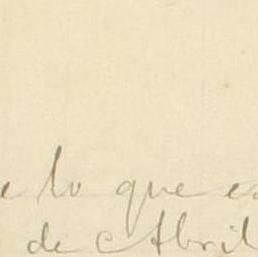 e lo que es
de Abril